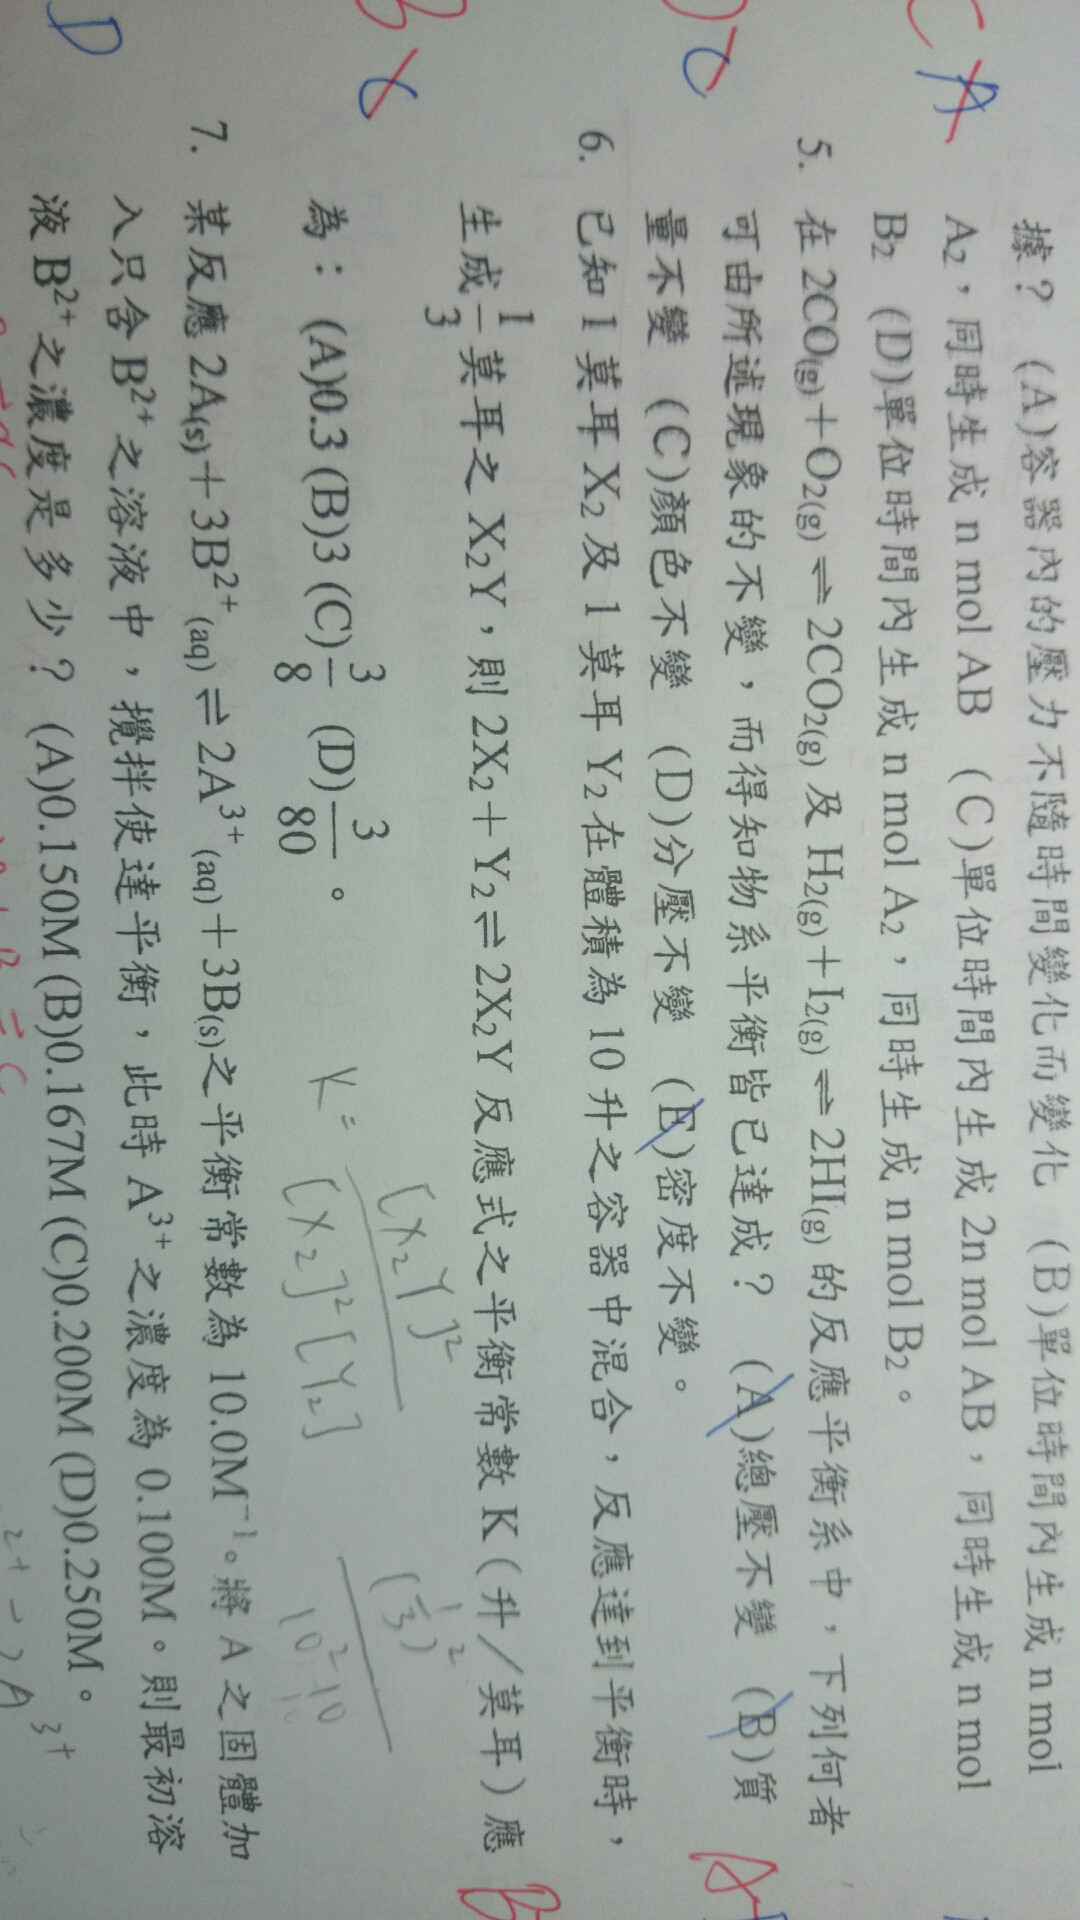 據？ (A)容器內的壓力不隨時間變化而變化 (B)單位時間內生成 n mol
A2，同時生成 n mol AB (C)單位時間內生成 2n mol AB，同時生成 n mol
B2 (D)單位時間內生成 n mol A2，同時生成 n mol B2。
5. 在 2CO(g)+O2(g)⇌2CO2(g) 及 H2(g)+I2(g)⇌2HI(g) 的反應平衡系中，下列何者
可由所述現象的不變，而得知物系平衡皆已達成？ (A)總壓不變 (B)質
量不變 (C)顏色不變 (D)分壓不變 (E)密度不變。
6. 已知 1 莫耳 X2 及 1 莫耳 Y2 在體積為 10 升之容器中混合，反應達到平衡時，
生成 1/3 莫耳之 X2Y，則 2X2+Y2⇌2X2Y 反應式之平衡常數 K（升／莫耳）應
為： (A)0.3 (B)3 (C)3/8 (D)3/80。
K = [X2Y]²/[X2]²[Y2]
7. 某反應 2A(s)+3B²⁺(aq)⇌2A³⁺(aq)+3B(s)之平衡常數為 10.0M⁻¹。將 A 之固體加
入只含 B²⁺之溶液中，攪拌使達平衡，此時 A³⁺之濃度為 0.100M。則最初溶
液 B²⁺之濃度是多少？ (A)0.150M (B)0.167M (C)0.200M (D)0.250M。
C
A
B
D
A
B